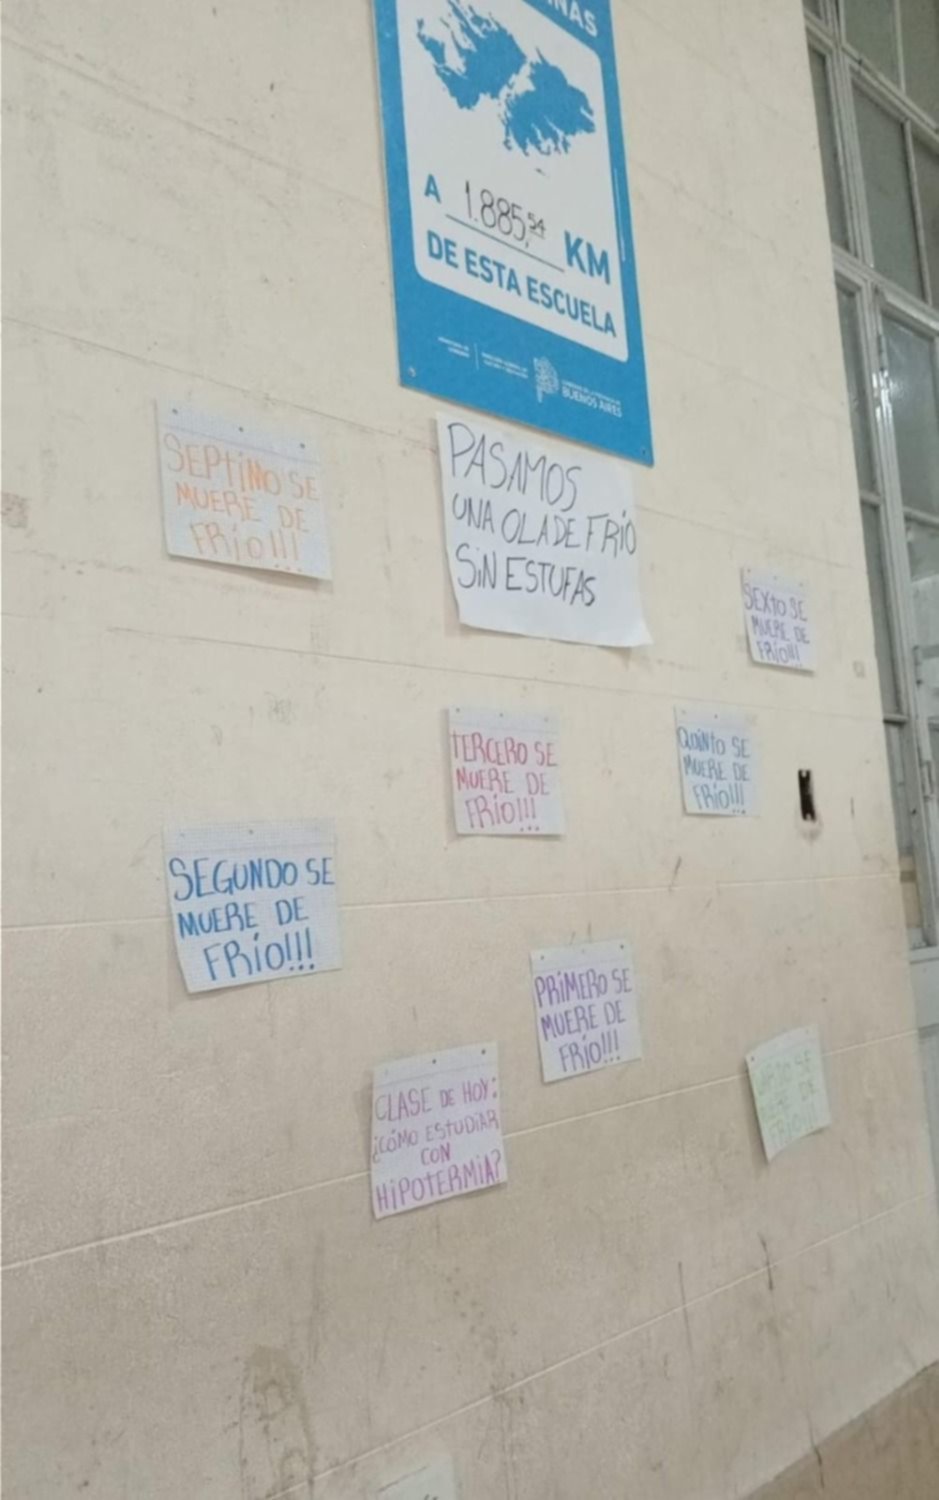 INAS
A 1.885,54 KM
DE ESTA ESCUELA
BUENOS AIRES
SEPTIMO SE
MUERE DE
FRÍO!!!
PASAMOS
UNA OLA DE FRÍO
SIN ESTUFAS
SEXTO SE
MUERE DE
FRÍO!!!
TERCERO SE
MUERE DE
FRÍO!!!
QUINTO SE
MUERE DE
FRÍO!!!
SEGUNDO SE
MUERE DE
FRÍO!!!
PRIMERO SE
MUERE DE
FRÍO!!!
CLASE DE HOY:
¿CÓMO ESTUDIAR
CON
HIPOTERMIA?
SE
DE
FRÍO!!!